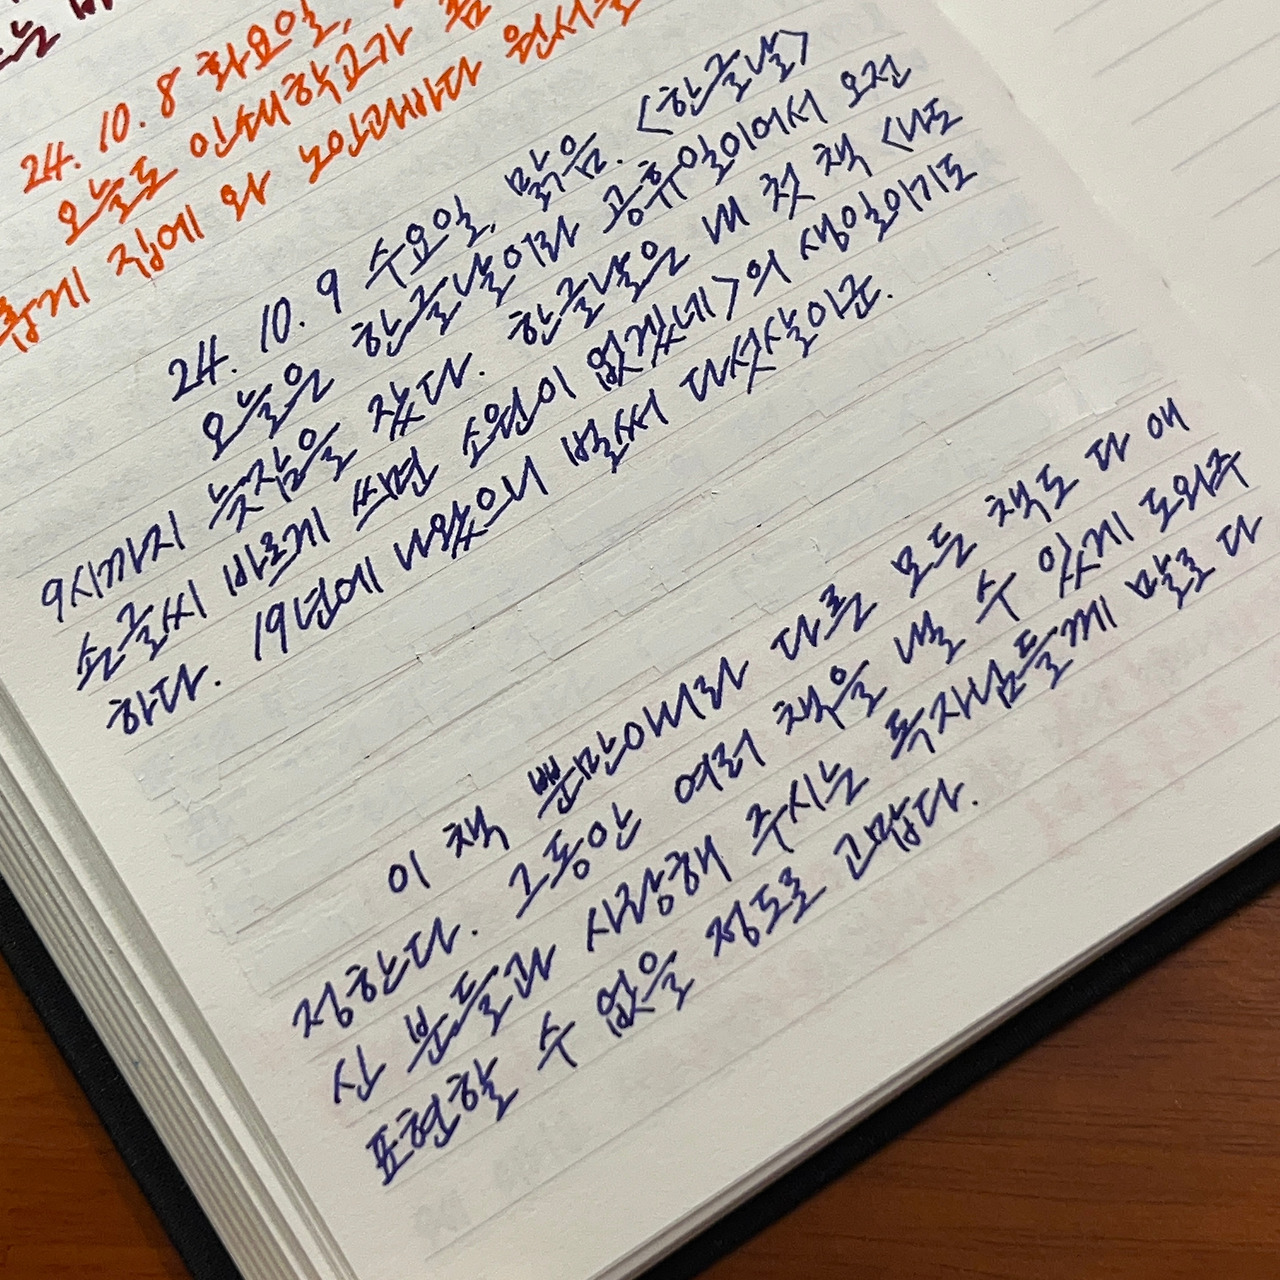 24. 10. 8 화요일,
오늘도 인쇄학교가
집에 와 노안과마다 원서를
24. 10. 9 수요일, 맑음. <한글날>
오늘은 한글날이라 공휴일이어서 오전
9시까지 늦잠을 잤다. 한글날은 내 첫 책 <나도
손글씨 바르게 쓰면 소원이 없겠네>의 생일이기도
하다. 19년에 나왔으니 벌써 다섯살이군.
이 책 뿐만아니라 다른 모든 책도 다 애
정한다. 그동안 여러 책을 낼 수 있게 도와주
신 분들과 사랑해 주시는 독자님들께 말로 다
표현할 수 없을 정도로 고맙다.